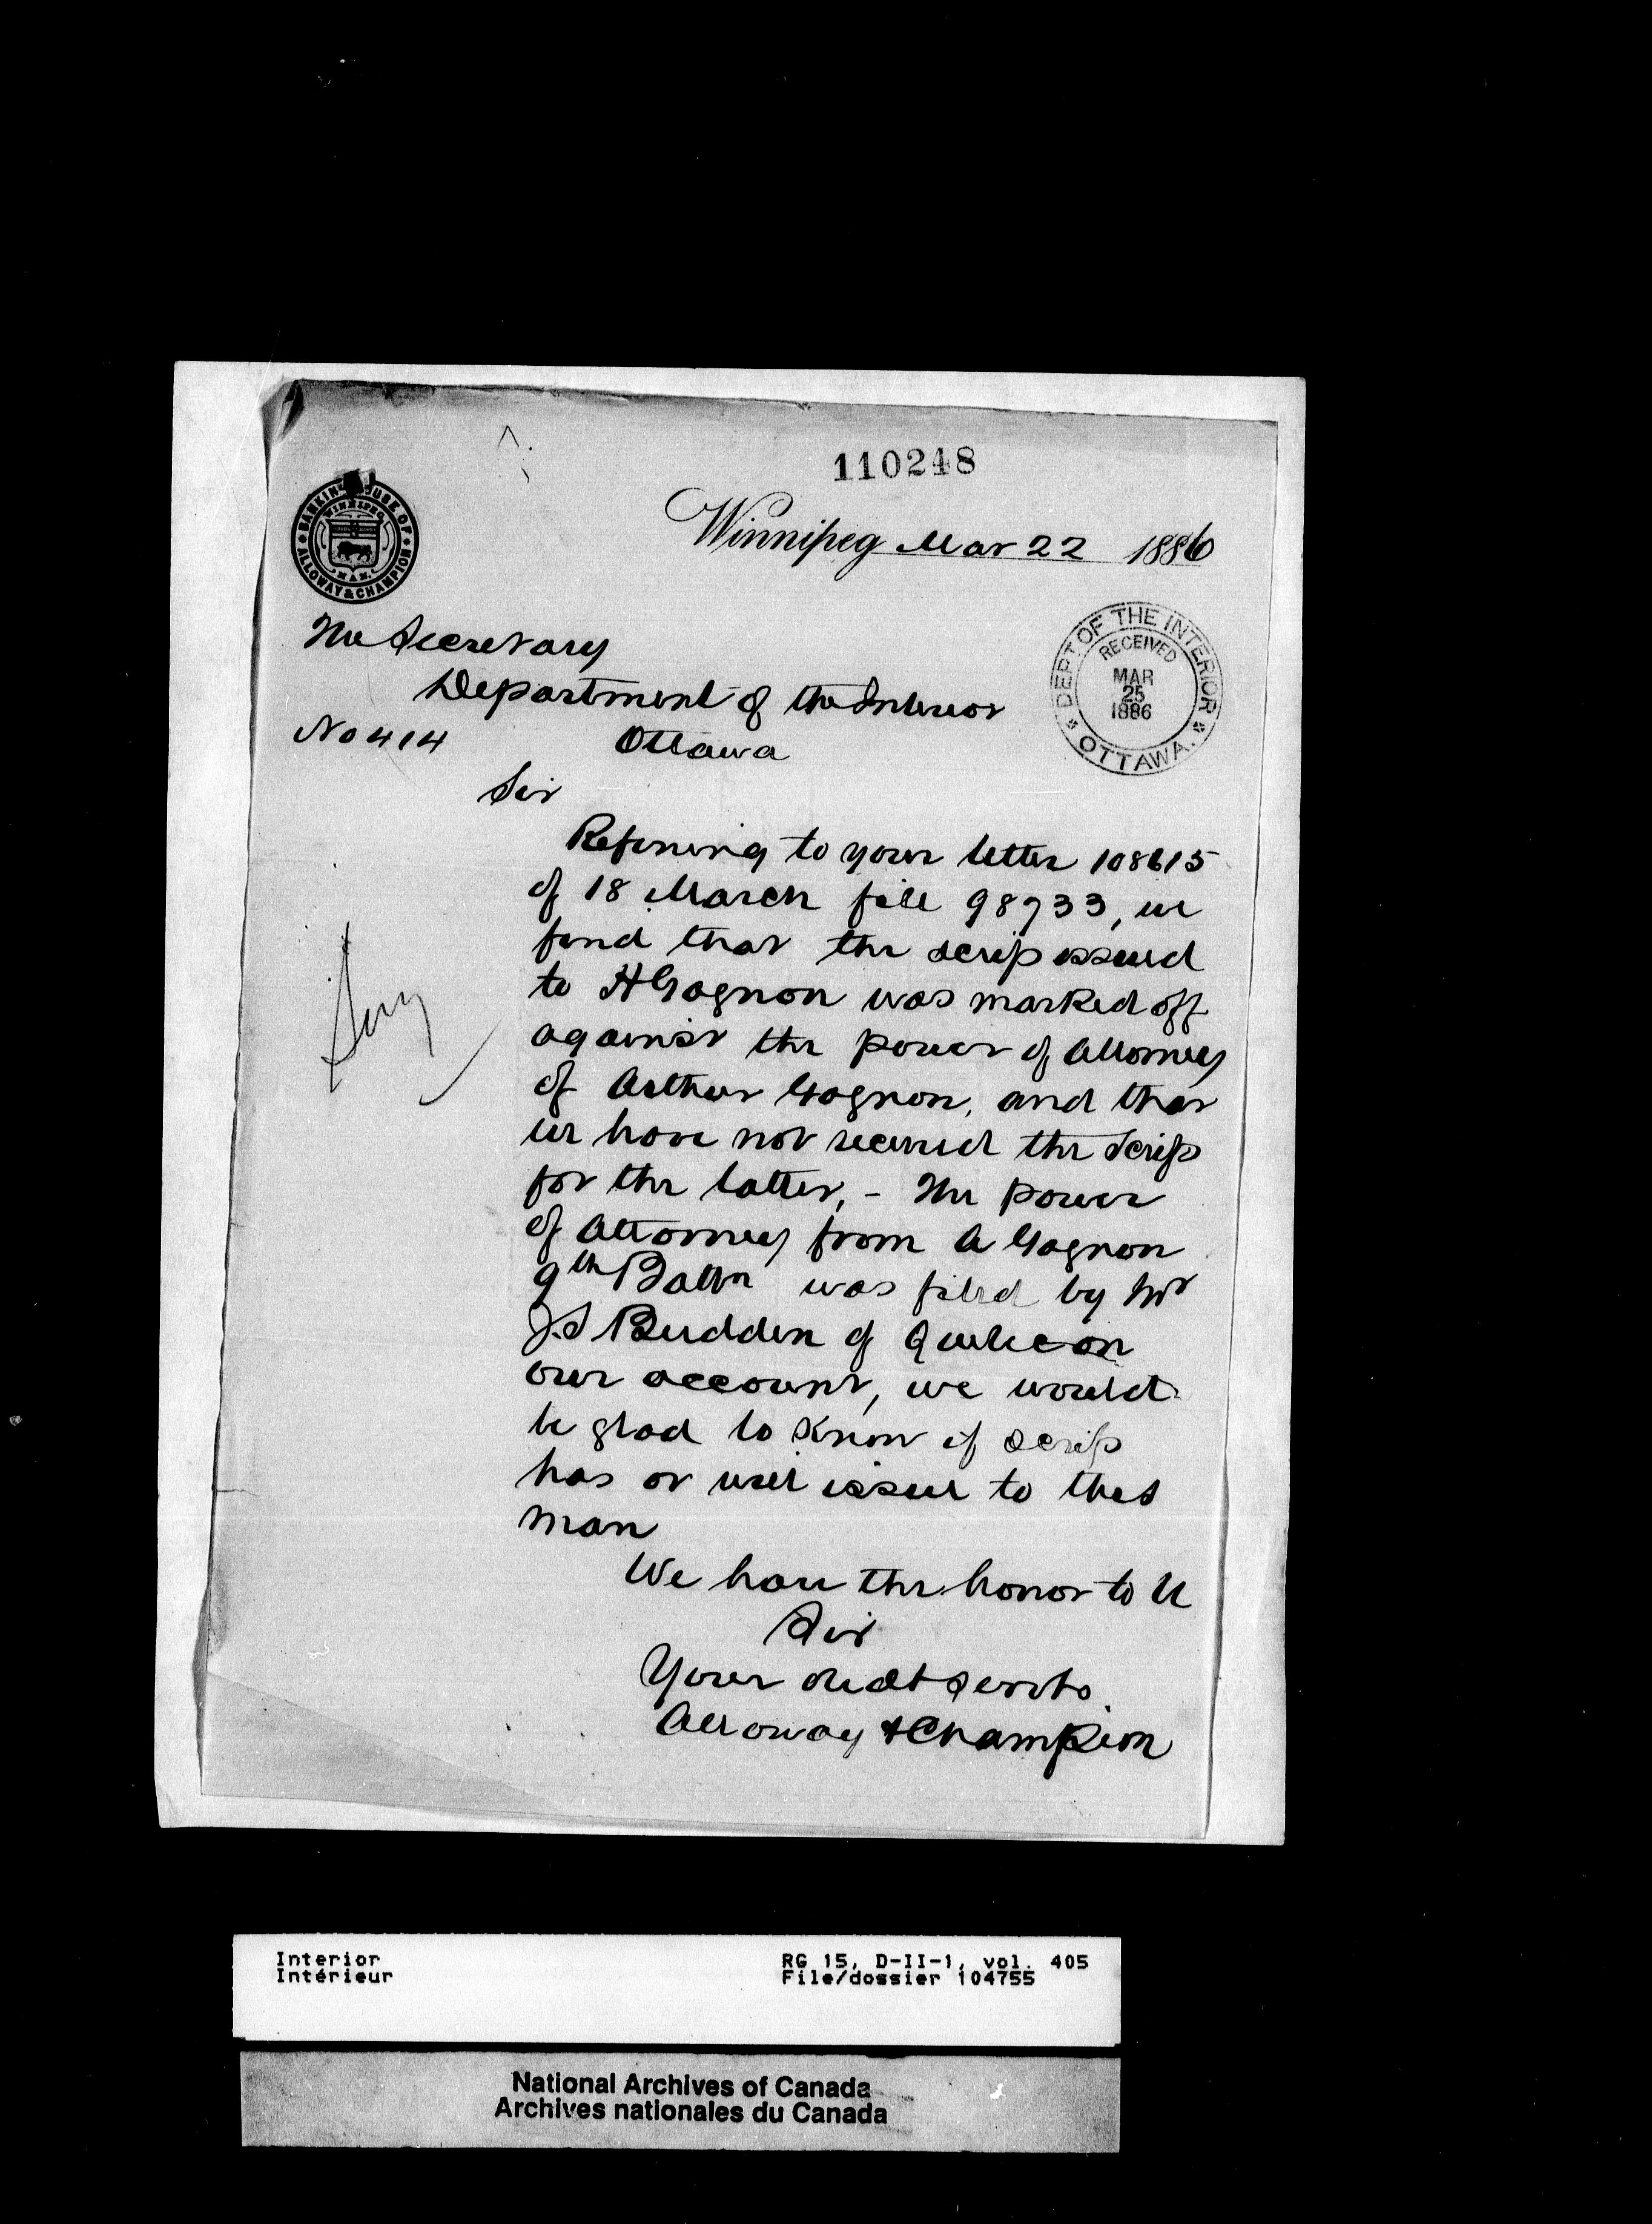 110248
BANKING HOUSE OF ALLOWAY & CHAMPION
WINNIPEG
MAN.
Winnipeg Mar 22 1886
The Secretary
Department of the Interior
No 414 Ottawa
DEPT. OF THE INTERIOR
RECEIVED
MAR
25
1886
OTTAWA.
Sir
Referring to your letter 108615
of 18 March file 98733, we
find that the scrip issued
to H Gagnon was marked off
against the power of Attorney
of Arthur Gagnon, and that
we have not received the Scrip
for the latter, - The power
of Attorney from A Gagnon
9th Battn was filed by Mr
J.S Budden of Quebec on
our account, we would
be glad to know if scrip
has or will issue to that
man
We have the honor to be
Sir
Your obedt servts
Alloway & Champion
Interior RG 15, D-II-1, vol. 405
Intérieur File/dossier 104755
National Archives of Canada
Archives nationales du Canada